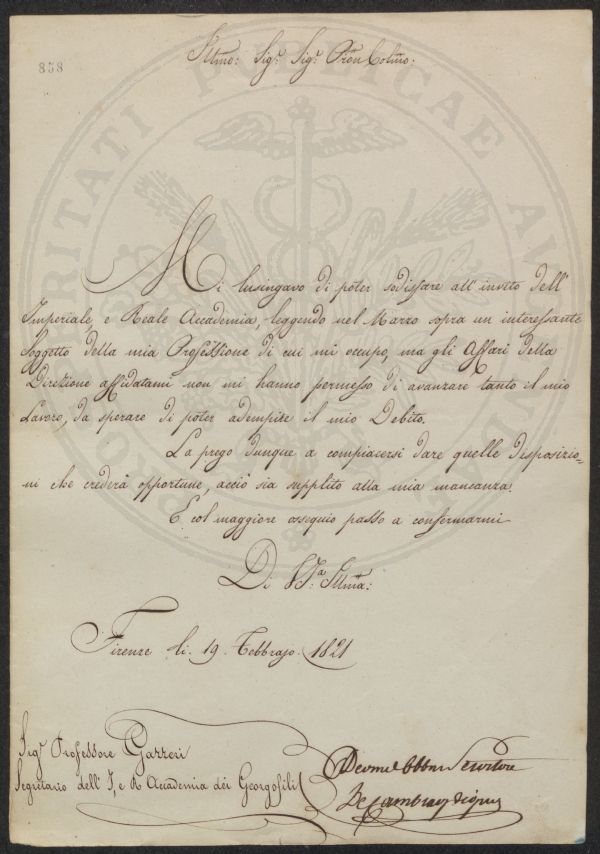 858
Illmo: Sig.r Sig.r Pron Colmo:
Mi lusingavo di poter sodisfare all' invito dell'
Imperiale, e Reale Accademia, leggendo nel Marzo sopra un interessante
Soggetto della mia Professione di cui mi occupo, ma gli Affari della
Direzione affidatami non mi hanno permesso di avanzare tanto il mio
Lavoro, da sperare di poter adempire il mio Debito.
La prego dunque a compiacersi dare quelle disposizio=
ni che crederà opportune, acciò sia supplito alla mia mancanza.
E col maggiore ossequio passo a confermarmi
Di V.S.a Illma:
Firenze li. 19. Febbrajo. 1821
Sig.r Professore Gazzeri
Segretario dell' I, e R Accademia dei Georgofili
Devmo Obbmo Servitore
De Cambray Digny